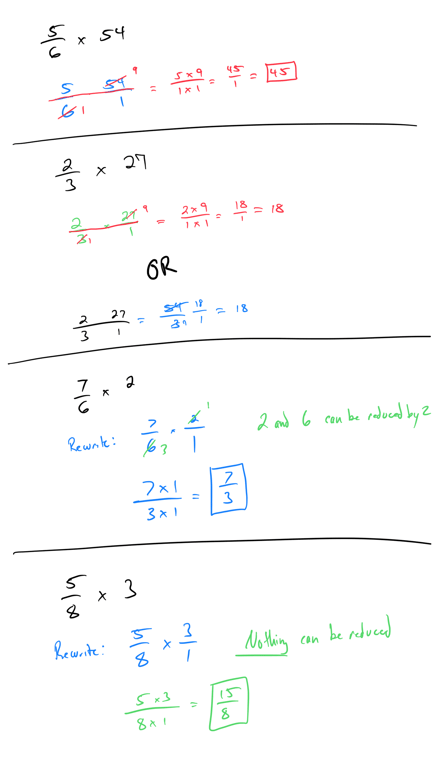 5/6 × 54
5/6 1 54/1 9 = 5×9/1×1 = 45/1 = 45
2/3 × 27
2/3 1 27/1 9 = 2×9/1×1 = 18/1 = 18
OR
2/3 27/1 = 54/3 1 18/1 = 18
7/6 × 2
Rewrite: 7/6 3 · 2/1 1 2 and 6 can be reduced by 2
7×1/3×1 = 7/3
5/8 × 3
Rewrite: 5/8 × 3/1 Nothing can be reduced
5×3/8×1 = 15/8